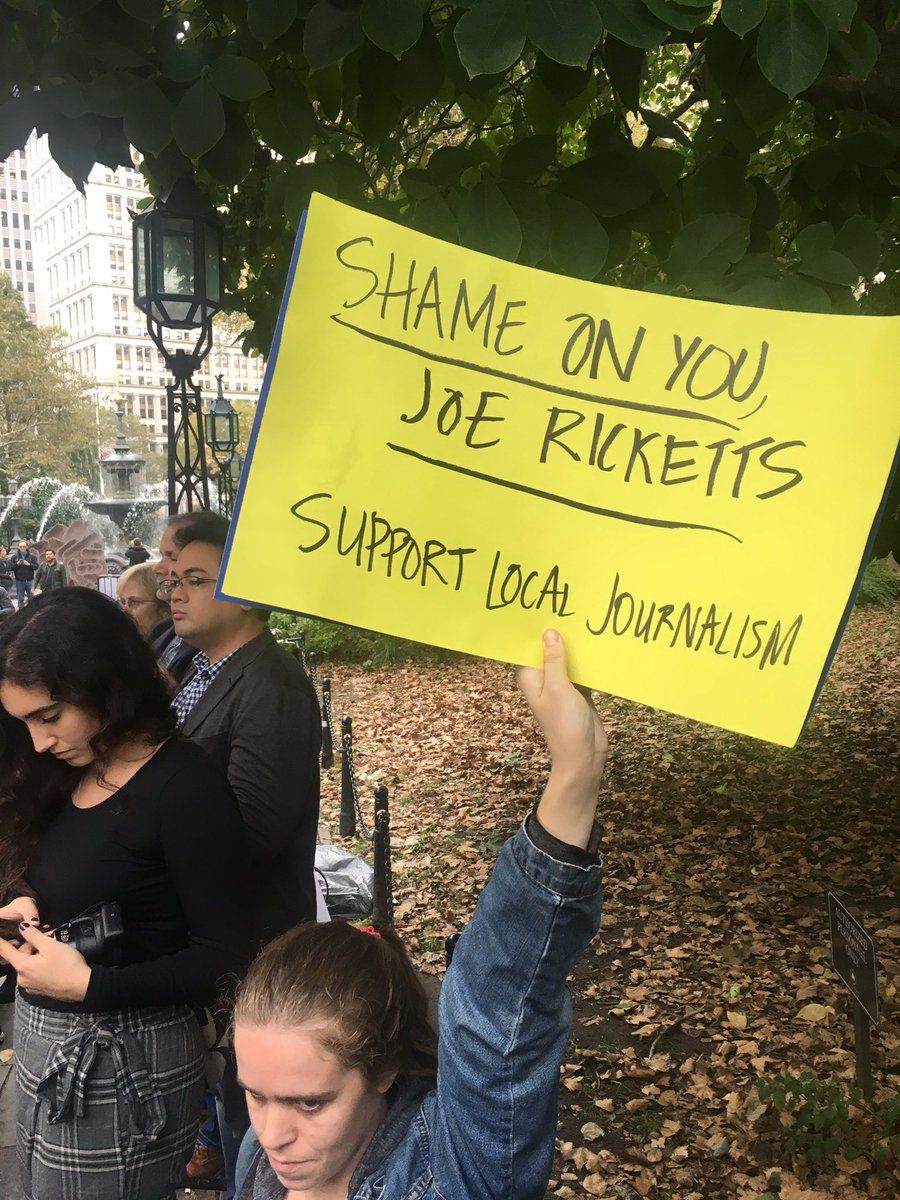 SHAME ON YOU,
JOE RICKETTS
SUPPORT LOCAL JOURNALISM